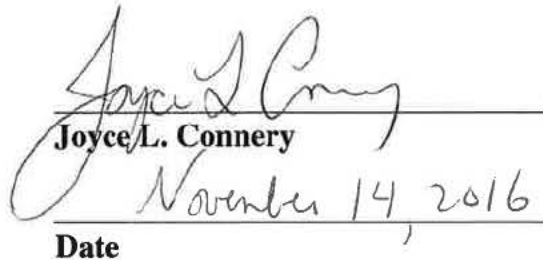 Joyce L Connery
Joyce L. Connery
November 14, 2016
Date